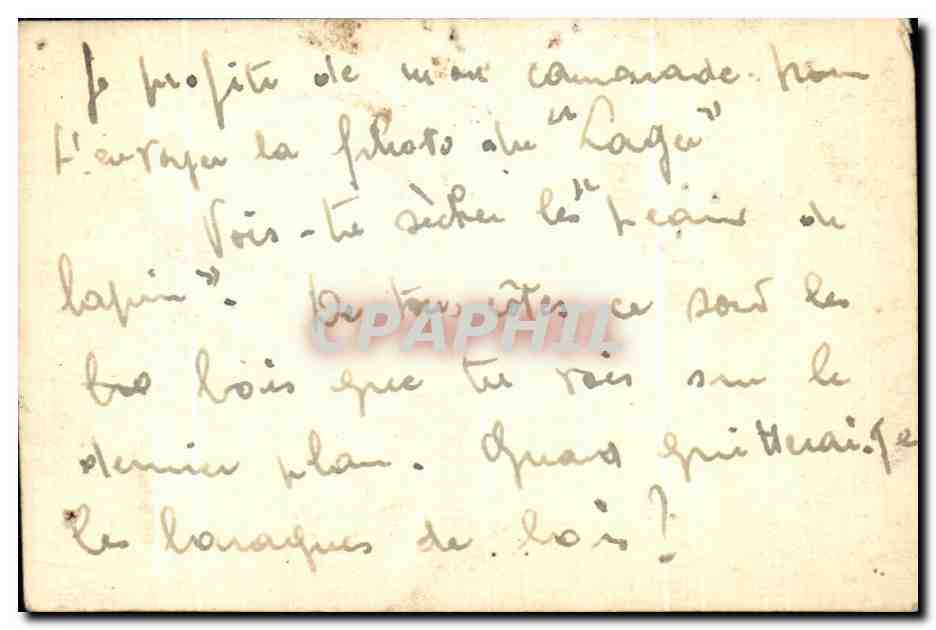 Je profite de mon camarade pour
t'envoyer la photo du "Lager"
Vois-tu sécher les "peaux de
lapin". De tous côtés ce sont les
bois que tu vois sur le
dernier plan. Quand quitterai-je
les baraques de bois!
CPAPHIL